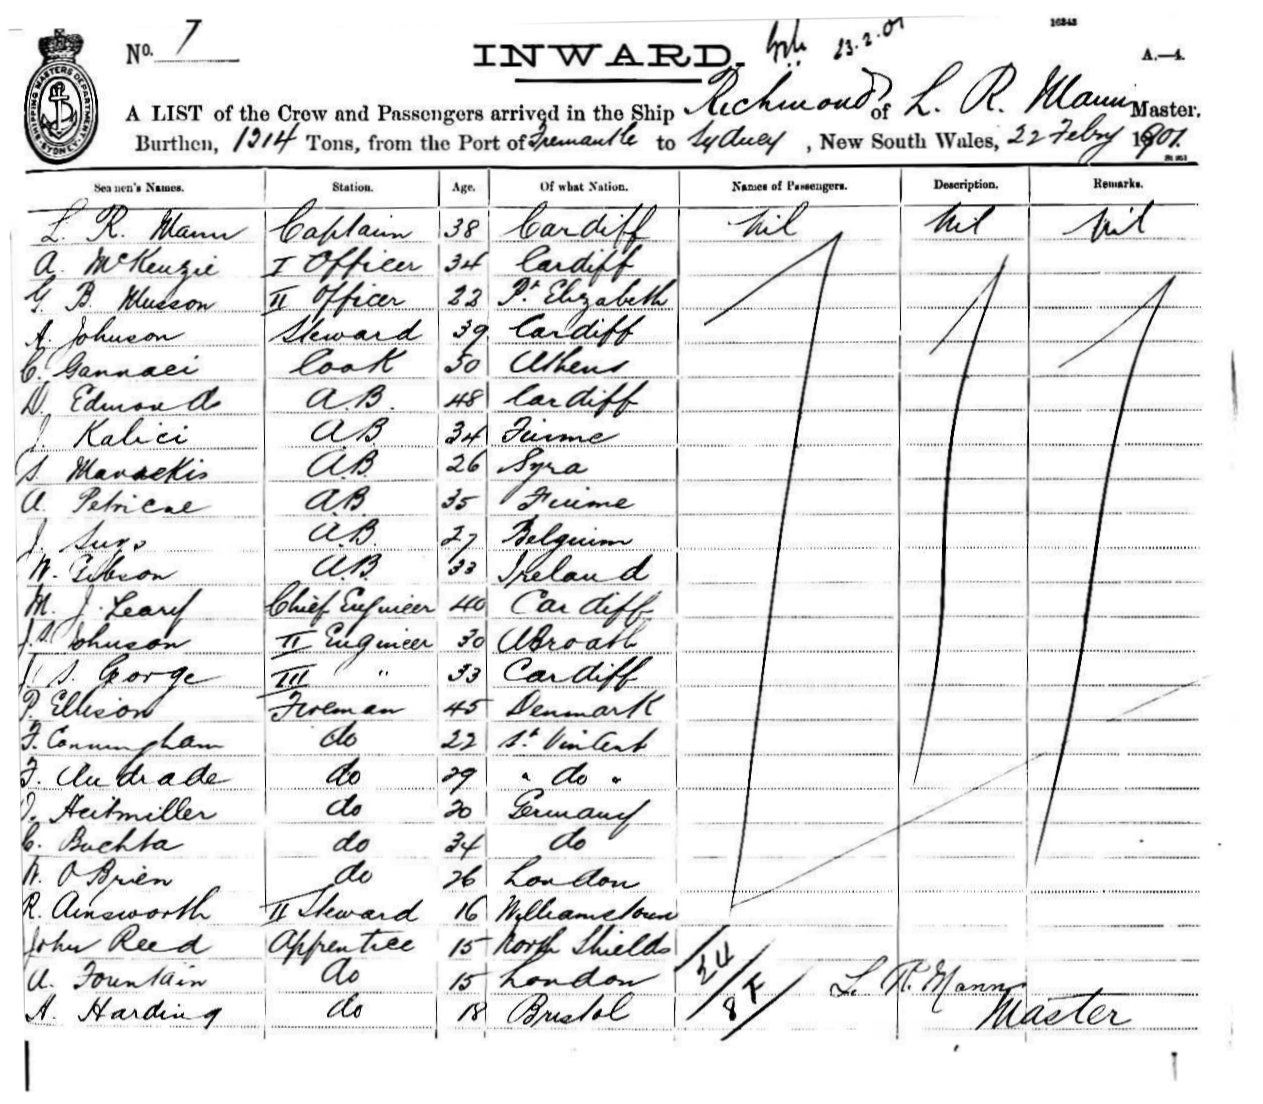 16343
No. 7 INWARD. 23.2.01 A.—4.
SHIPPING MASTERS DEPARTMENT SYDNEY
A LIST of the Crew and Passengers arrived in the Ship Richmond of L. R. Mann Master.
Burthen, 1214 Tons, from the Port of Fremantle to Sydney, New South Wales, 22 Febry 1901.
Seamen's Names. Station. Age. Of what Nation. Names of Passengers. Description. Remarks.
L. R. Mann Captain 38 Cardiff Nil Nil Nil
A. McKenzie I Officer 34 Cardiff
G. B. Musson II Officer 22 Pt. Elizabeth
A. Johnson Steward 39 Cardiff
C. Gannaci Cook 50 Athens
D. Edmonds A.B. 48 Cardiff
J. Kalici A.B. 34 Fiume
S. Manackis A.B. 26 Syra
A. Petricne A.B. 35 Fuime
J. A.B. 27 Belgium
W. Gibson A.B. 33 Ireland
M. J. Leary Chief Engineer 40 Cardiff
Johnson II Engineer 30 ABroath
S. George III " 33 Cardiff
P. Ellison Fireman 45 Denmark
F. Conningham do 22 St. Vincent
F. Andrade do 29 " do "
Heitmiller do 20 Germany
C. Buchta do 34 do
W. O Brien do 26 London
R. Ainsworth II Steward 16 Williamstown
John Reed Apprentice 15 North Shields
A. Fountain do 15 London
H. Harding do 18 Bristol
24 / 8 F
L. R. Mann
Master